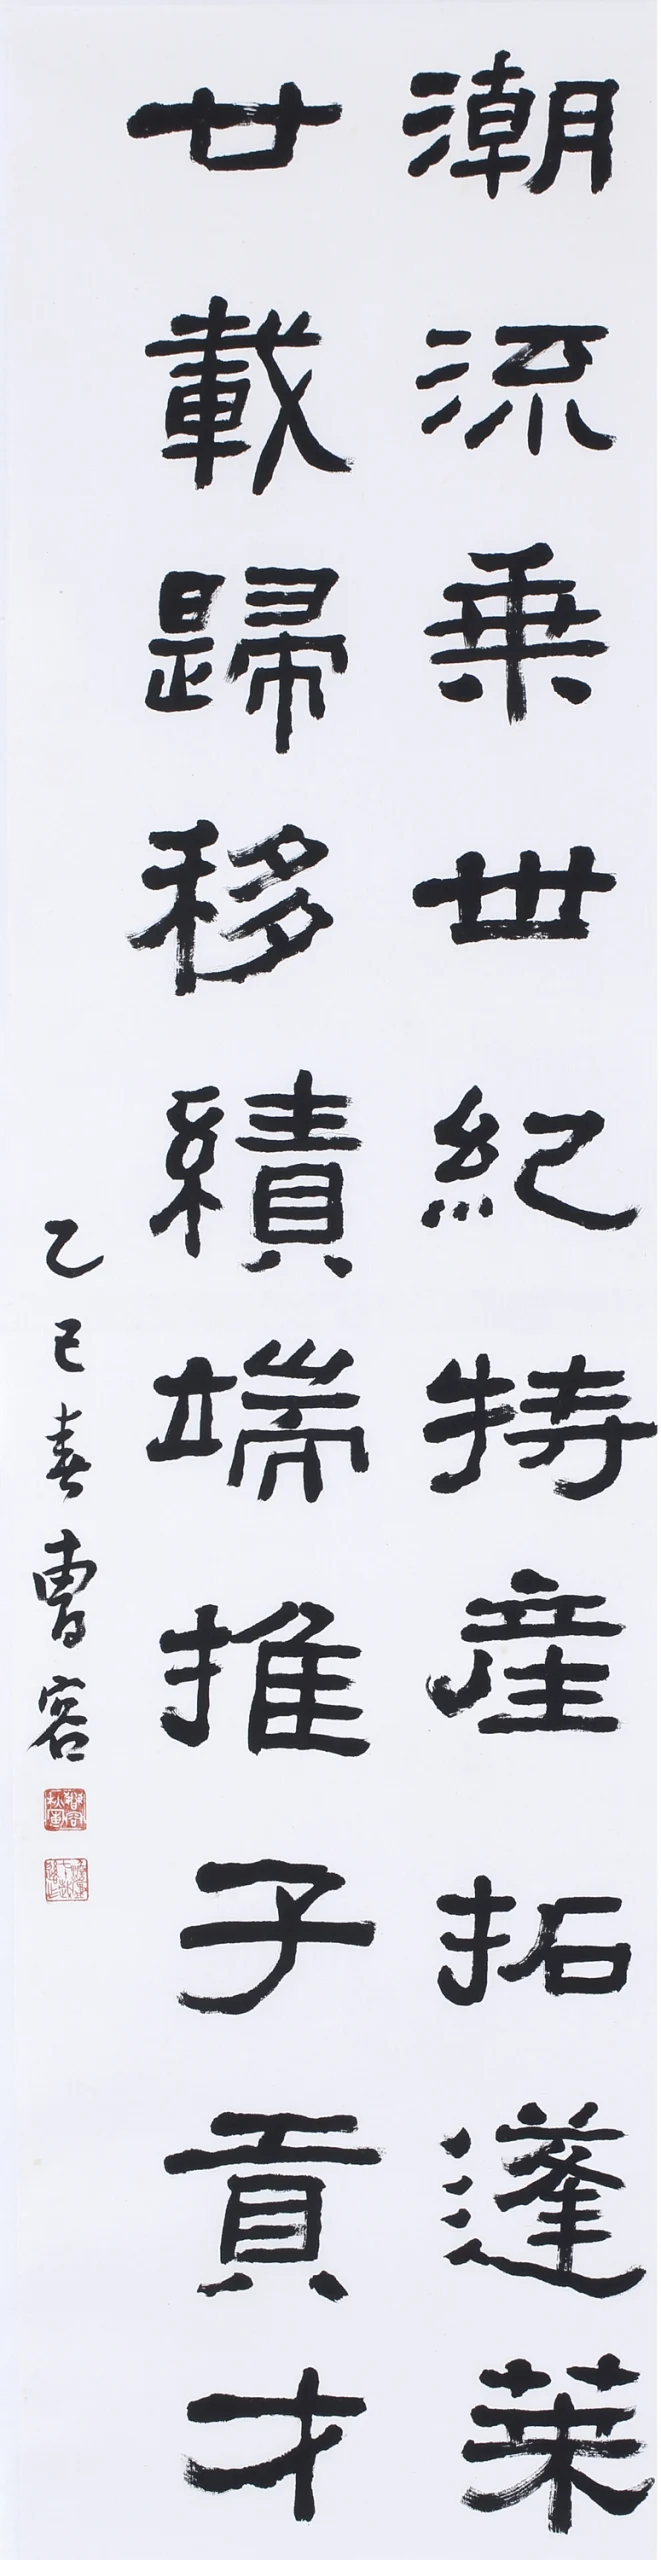 潮流乗世紀特産拓蓬莱
廿載歸移績端推子貢才
乙巳春曹容